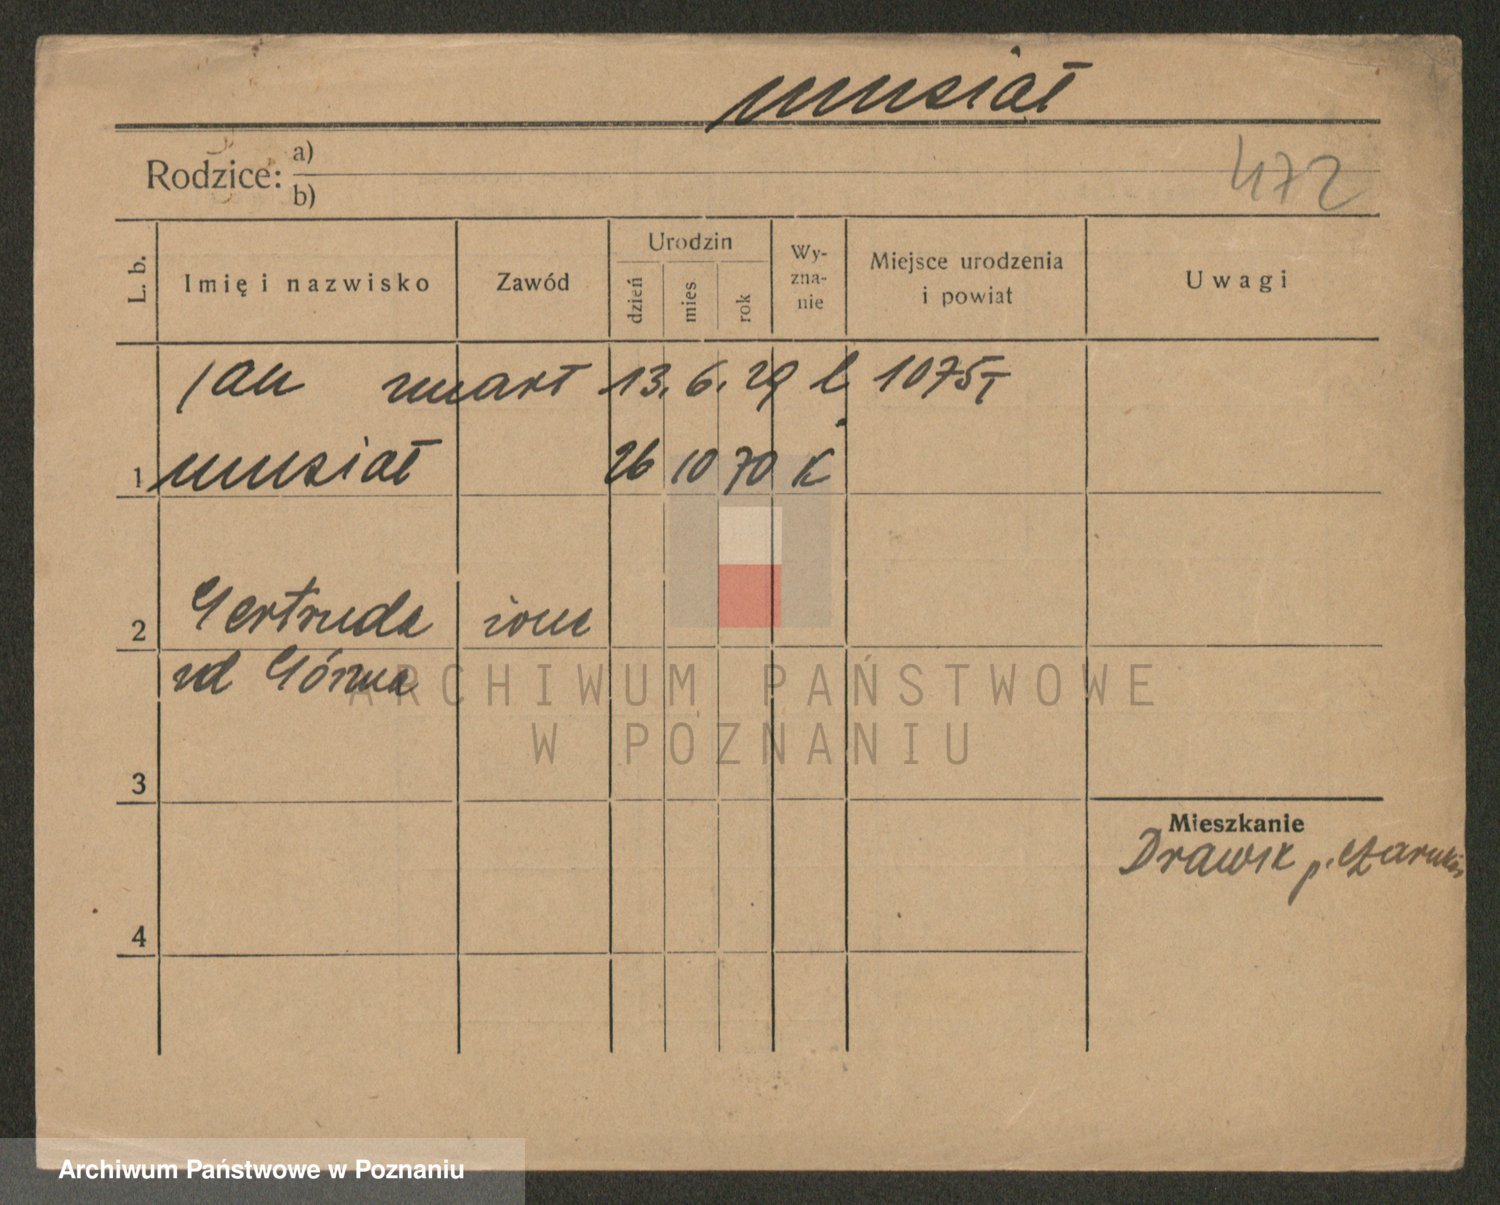 Musiał
Rodzice: a)
b)
472
L. b.
Imię i nazwisko
Zawód
Urodzin
dzień
mies
rok
Wy-
zna-
nie
Miejsce urodzenia
i powiat
Uwagi
Jan zmarł 13. 6. 29 l. 1075
1 Musiał 26 10 70 K
2 Gertruda żona
zd Górna
3
4
Mieszkanie
Drawsk p. Czarnków
ARCHIWUM PAŃSTWOWE
W POZNANIU
Archiwum Państwowe w Poznaniu